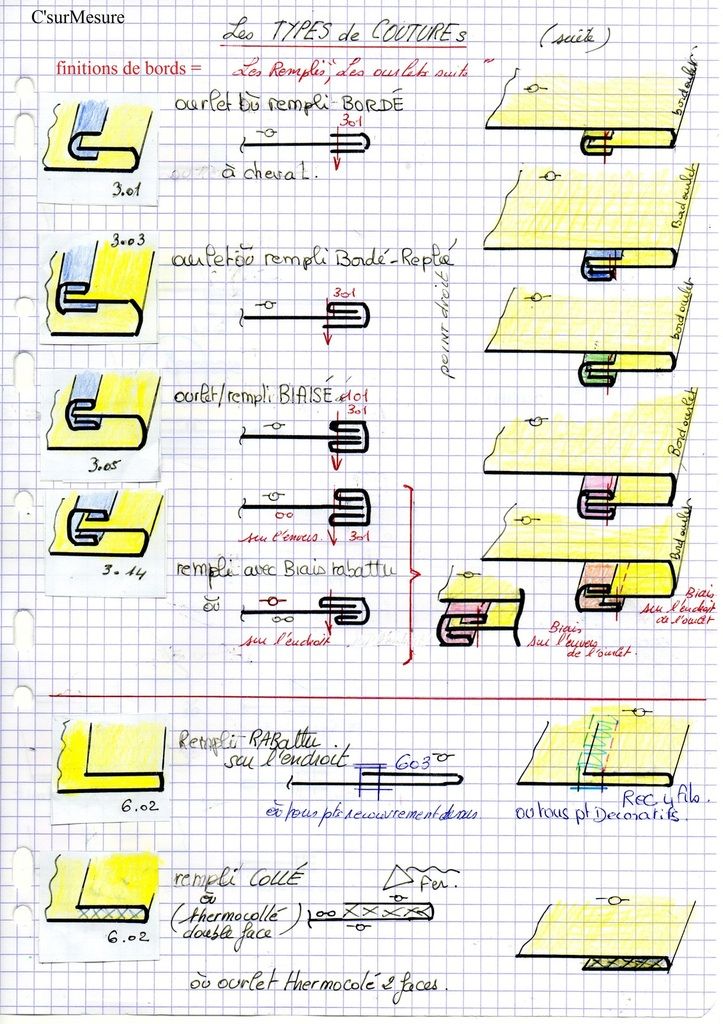 C'surMesure
Les TYPES de COUTUREs
(suite)
finitions de bords = Les Remplis, Les ourlets suite "
ourlet où rempli-BORDÉ
301
à cheval.
3.01
bord ourlet
3.03
ourlet où rempli Bordé-Replié
301
Bord ourlet
point droit
bord ourlet
ourlet/rempli BIAISÉ
101
301
3.05
Bord ourlet
sur l'envers
301
3.14
rempli avec Biais rabattu
où
sur l'endroit
Bord ourlet
Biais
sur l'envers
de l'ourlet.
Biais
sur l'endroit
de l'ourlet
Rempli-RABattu
sur l'endroit
603
6.02
où tous pts recouvrement dessus
Rec 4 fils.
ou tous pt Decoratifs.
rempli COLLÉ
où
(thermocollé
double face)
Fer.
6.02
où ourlet thermocolé 2 faces.